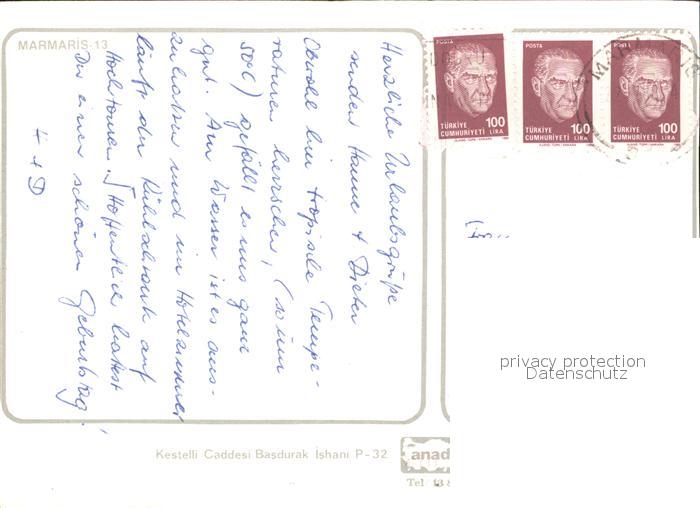 MARMARIS-13
Herzliche Urlaubsgrüße
senden Hanne + Dieter
Obwohl hier tropische Tempe-
raturen herrschen, (so um
50C) gefällt es uns ganz
gut. Am Wasser ist es aus-
zuhalten und im Hotelzimmer
läuft der Kühlschrank auf
Hochtouren. Hoffentlich hattest
Du einen schönen Geburtstag.
H + D
POSTA
100
TÜRKİYE
CUMHURİYETİ LİRA
POSTA
100
TÜRKİYE
CUMHURİYETİ LİRA
POSTA
100
TÜRKİYE
CUMHURİYETİ LİRA
privacy protection
Datenschutz
Kestelli Caddesi Başdurak İshanı P-32
anad
Tel